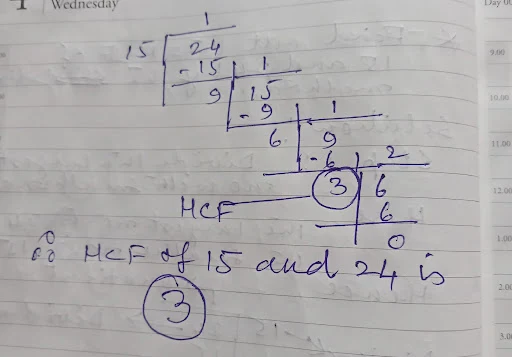 Wednesday
Day 00
1
15 24
- 15 1
9 15
- 9 1
6 9
- 6 2
3 6
HCF 6
0
∴ HCF of 15 and 24 is
3
9.00
10.00
11.00
12.00
1.00
2.00
3.00